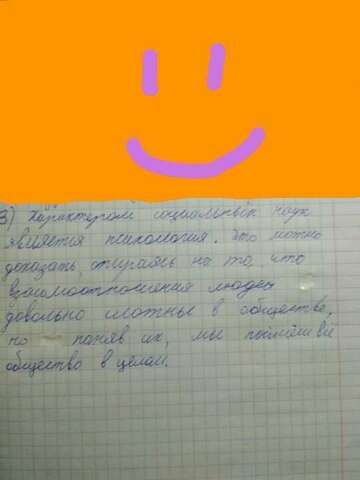 3) Характером социальных наук
является психология. Это можно
доказать, опираясь на то, что
взаимоотношения людей
довольно сложны в обществе,
но поняв их, мы поймём и
общество в целом.